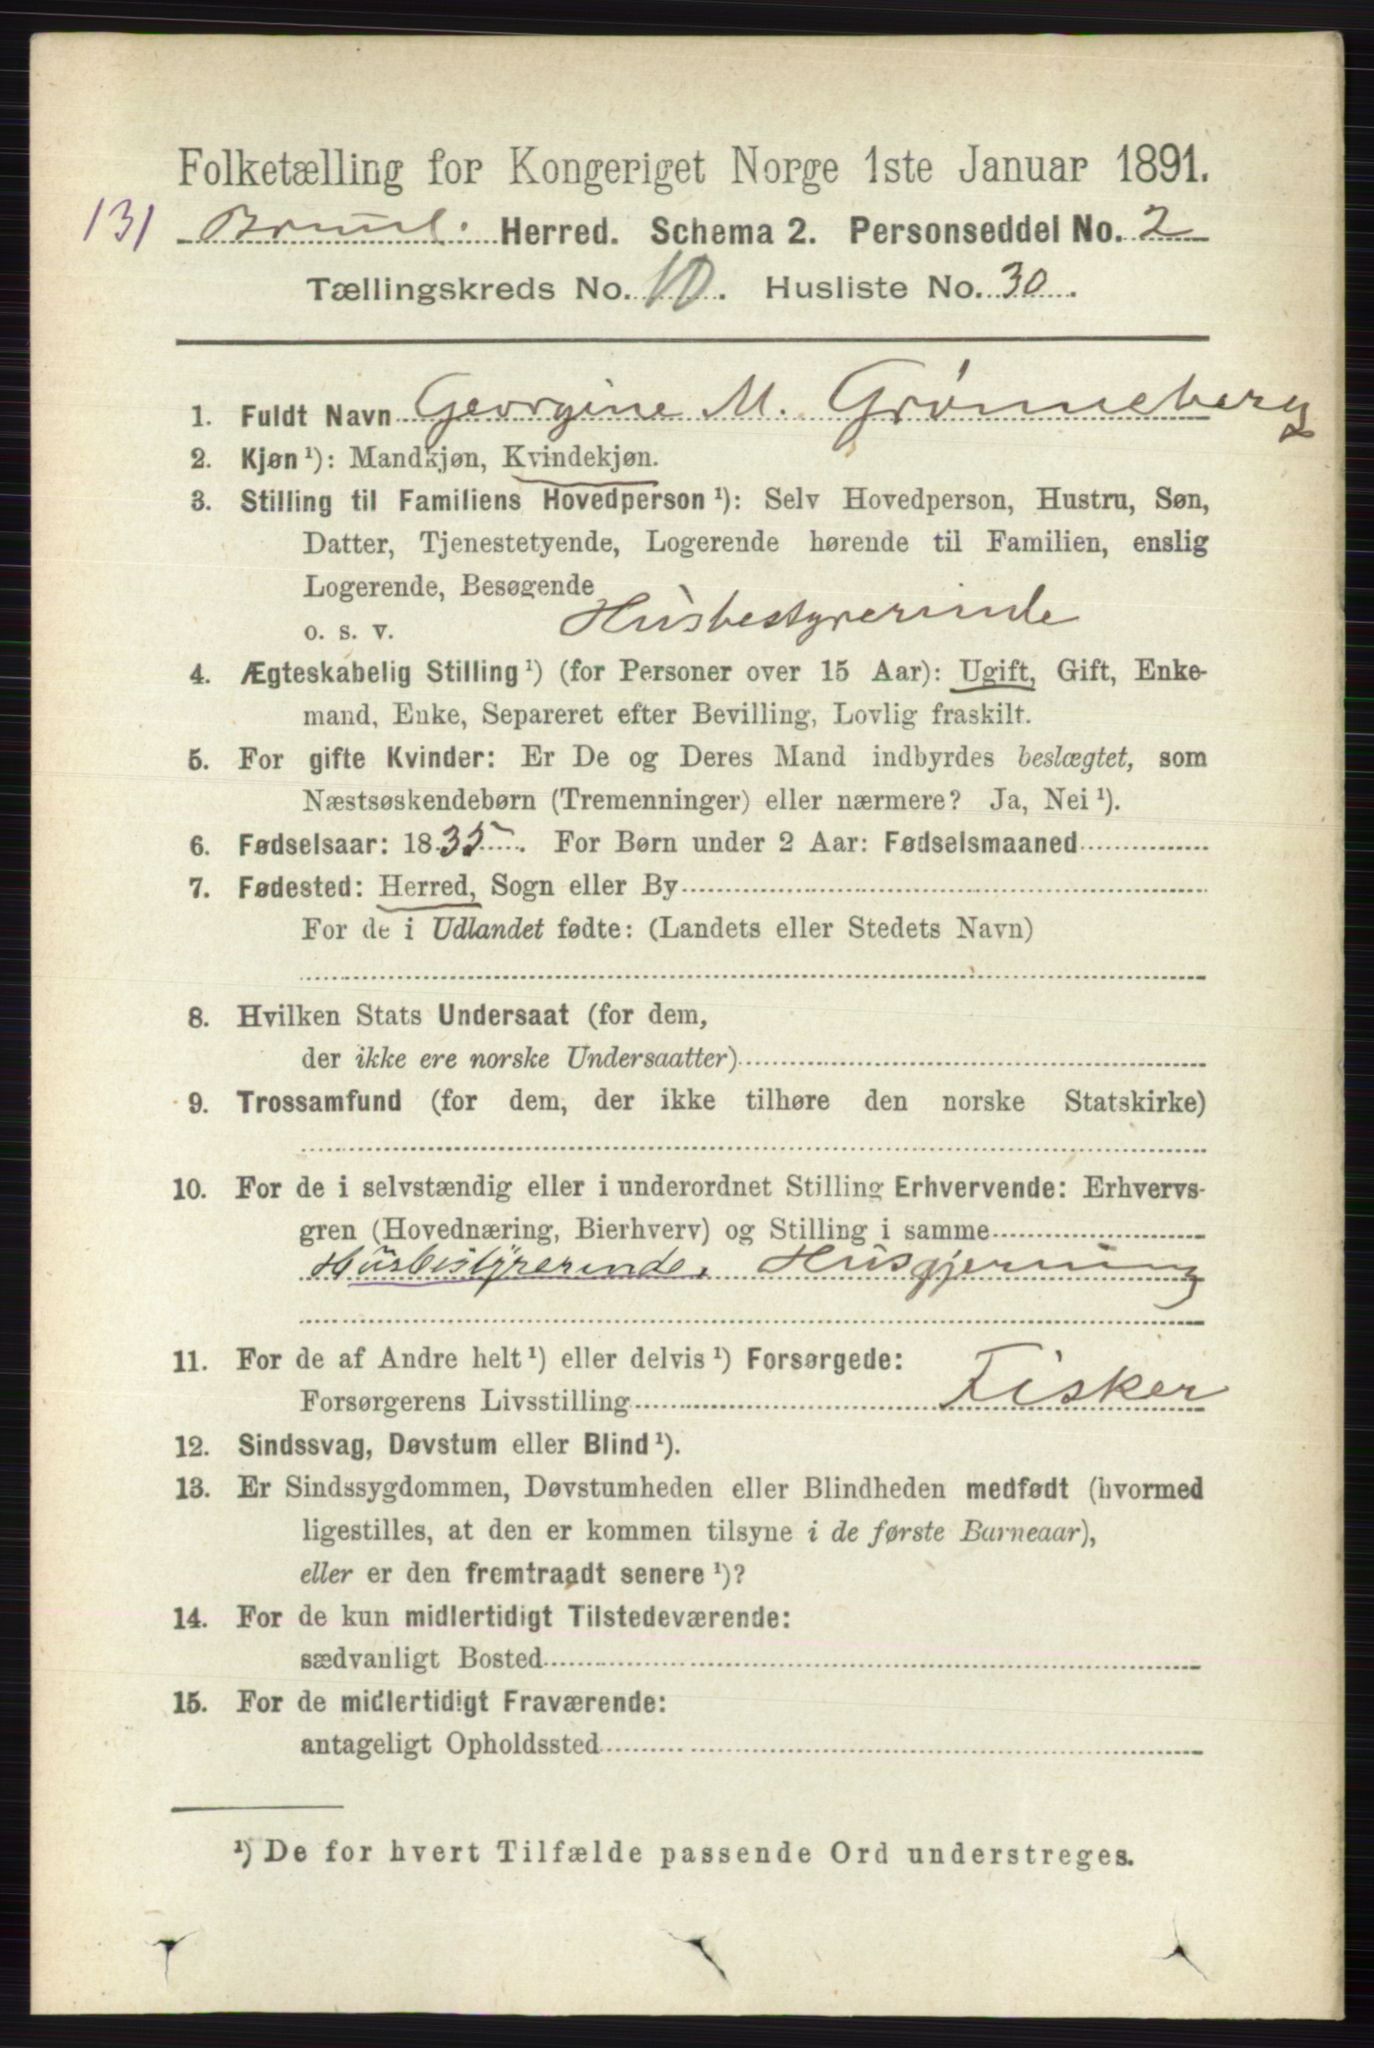 Folketælling for Kongeriget Norge 1ste Januar 1891.
131 Herred. Schema 2. Personseddel No. 2
Tællingskreds No. 10. Husliste No. 30.
1. Fuldt Navn Georgine M. Grønneberg
2. Kjøn ¹): Mandkjøn, Kvindekjøn.
3. Stilling til Familiens Hovedperson ¹): Selv Hovedperson, Hustru, Søn,
Datter, Tjenestetyende, Logerende hørende til Familien, enslig
Logerende, Besøgende
o. s. v. Husbestyrerinde
4. Ægteskabelig Stilling ¹) (for Personer over 15 Aar): Ugift, Gift, Enke-
mand, Enke, Separeret efter Bevilling, Lovlig fraskilt.
5. For gifte Kvinder: Er De og Deres Mand indbyrdes beslægtet, som
Næstsøskendebørn (Tremenninger) eller nærmere? Ja, Nei ¹).
6. Fødselsaar: 1835. For Børn under 2 Aar: Fødselsmaaned
7. Fødested: Herred, Sogn eller By
For de i Udlandet fødte: (Landets eller Stedets Navn)
8. Hvilken Stats Undersaat (for dem,
der ikke ere norske Undersaatter)
9. Trossamfund (for dem, der ikke tilhøre den norske Statskirke)
10. For de i selvstændig eller i underordnet Stilling Erhvervende: Erhvervs-
gren (Hovednæring, Bierhverv) og Stilling i samme
Husbestyrerinde, Husgjerning
11. For de af Andre helt ¹) eller delvis ¹) Forsørgede:
Forsørgerens Livsstilling Fisker
12. Sindssvag, Døvstum eller Blind ¹).
13. Er Sindssygdommen, Døvstumheden eller Blindheden medfødt (hvormed
ligestilles, at den er kommen tilsyne i de første Barneaar),
eller er den fremtraadt senere ¹)?
14. For de kun midlertidigt Tilstedeværende:
sædvanligt Bosted
15. For de midlertidigt Fraværende:
antageligt Opholdssted
¹) De for hvert Tilfælde passende Ord understreges.